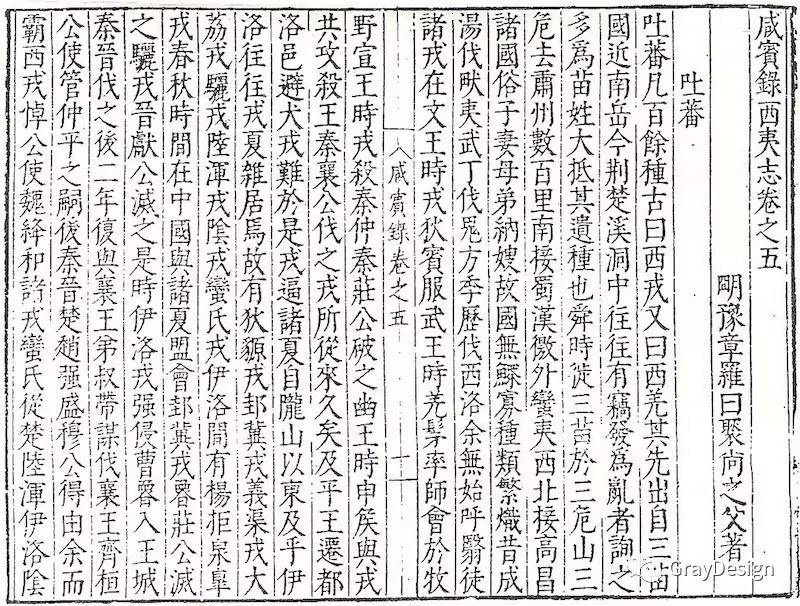 咸賓錄西夷志卷之五
明豫章羅曰褧尚之父著
吐蕃
吐蕃凡百餘種古曰西戎又曰西羌其先出自三苗
國近南岳今荆楚溪洞中往往有竊發為亂者詢之
多為苗姓大抵其遺種也舜時徙三苗於三危山三
危去肅州數百里南接蜀漢徼外蠻夷西北接高昌
諸國俗子妻母弟納嫂故國無鰥寡種類繁熾昔成
湯伐畎夷武丁伐鬼方季歷伐西洛余無始呼翳徒
諸戎在文王時戎狄賓服武王時羌髳率師會於牧
咸賓錄卷之五 一
野宣王時戎殺秦仲秦莊公破之幽王時申侯與戎
共攻殺王秦襄公伐之戎所從來久矣及平王遷都
洛邑避犬戎難於是戎逼諸夏自隴山以東及乎伊
洛往往戎夏雜居焉故有狄獂戎邽冀戎義渠戎大
荔戎驪戎陸渾戎陰戎蠻氏戎伊洛間有楊拒泉皐
戎春秋時間在中國與諸夏盟會邽冀戎魯莊公滅
之驪戎晉獻公滅之是時伊洛戎强侵曹魯入王城
秦晉伐之後二年復與襄王弟叔帶謀伐襄王齊桓
公使管仲平之嗣後秦晉楚趙强盛穆公得由余而
霸西戎悼公使魏絳和諸戎蠻氏從楚陸渾伊洛陰
GrayDesign